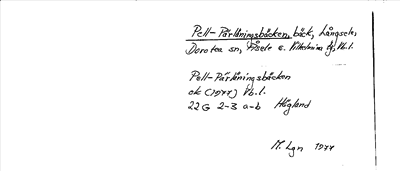 Pell-Pärlåningsbäcken, bäck, Långsele,
Dorotea sn, Åsele o. Vilhelmina lfs, Vb.l.
Pell-Pärlåningsbäcken
ek (1977) Vb.l.
22G 2-3 a-b Högland
M. Lgn 1977